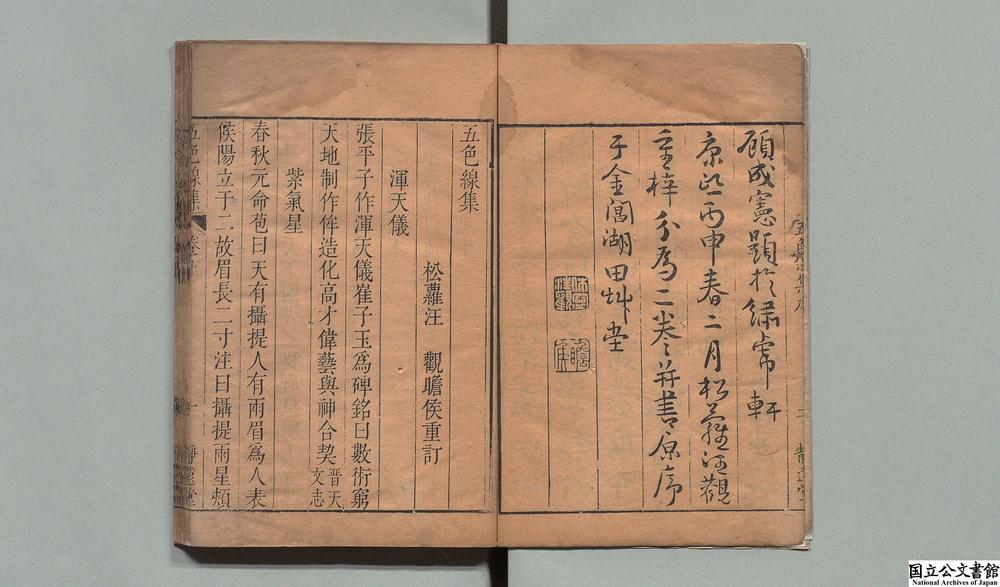 顧成憲題於繡常軒
康熙丙申春二月松蘿汪觀
重梓分爲二卷並書原序
于金閶湖田艸堂
五色線集
松蘿汪　觀瞻侯重訂
渾天儀
張平子作渾天儀崔子玉爲碑銘曰數術窮
天地制作侔造化高才偉藝與神合契晉天文志
紫氣星
春秋元命苞曰天有攝提人有兩眉爲人表
候陽立于二故眉長二寸注曰攝提兩星頰
五色線集
一
靜遠堂
国立公文書館
National Archives of Japan